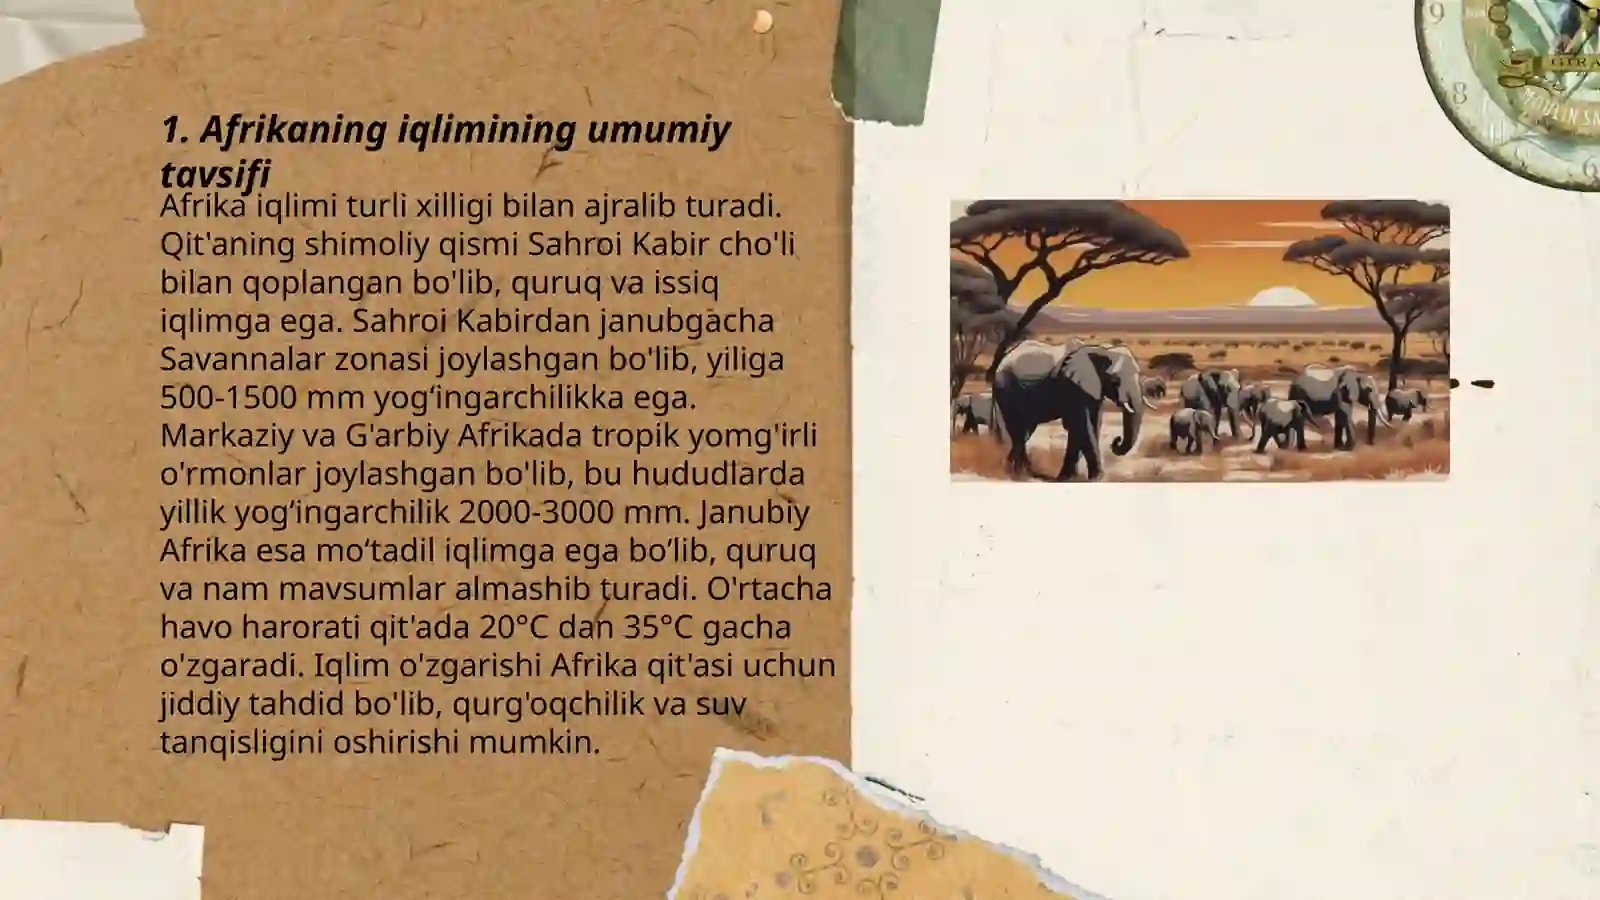 1. Afrikaning iqlimining umumiy
tavsifi
Afrika iqlimi turli xilligi bilan ajralib turadi.
Qit'aning shimoliy qismi Sahroi Kabir cho'li
bilan qoplangan bo'lib, quruq va issiq
iqlimga ega. Sahroi Kabirdan janubgacha
Savannalar zonasi joylashgan bo'lib, yiliga
500-1500 mm yog‘ingarchilikka ega.
Markaziy va G'arbiy Afrikada tropik yomg'irli
o'rmonlar joylashgan bo'lib, bu hududlarda
yillik yog‘ingarchilik 2000-3000 mm. Janubiy
Afrika esa mo‘tadil iqlimga ega bo‘lib, quruq
va nam mavsumlar almashib turadi. O'rtacha
havo harorati qit'ada 20°C dan 35°C gacha
o'zgaradi. Iqlim o'zgarishi Afrika qit'asi uchun
jiddiy tahdid bo'lib, qurg'oqchilik va suv
tanqisligini oshirishi mumkin.
9
8
6
MOULIN